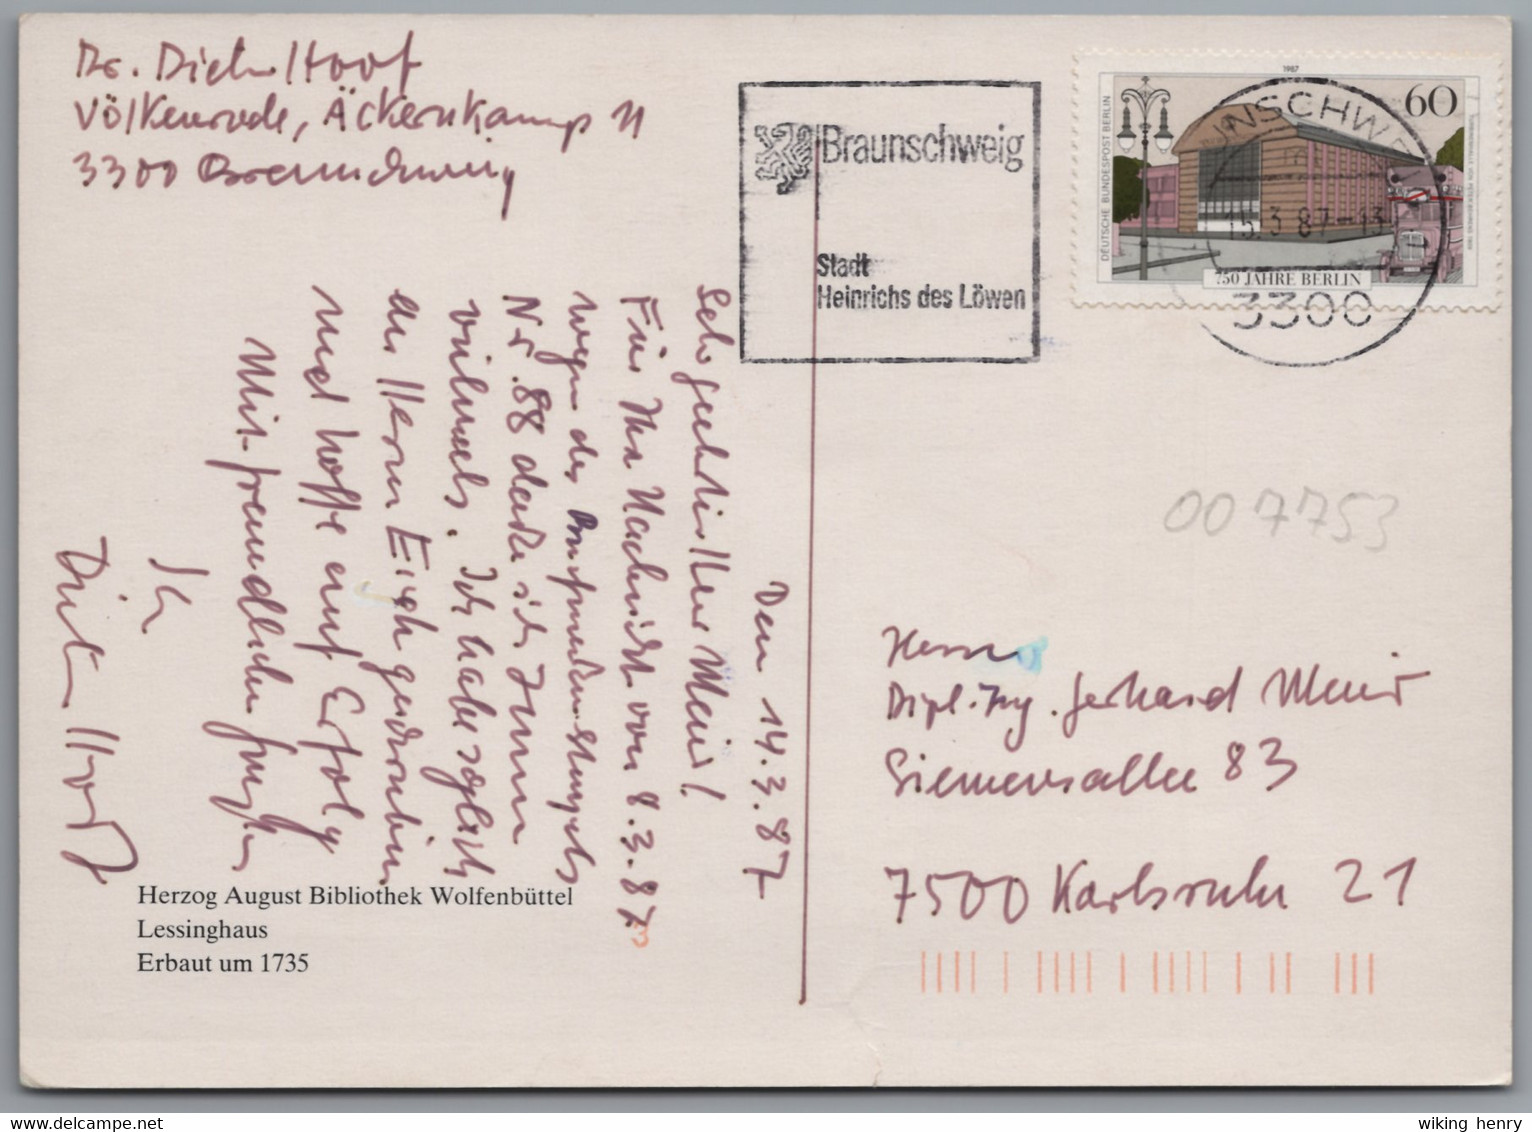 Dr. Dieter Hoof
Völkenrode, Äckernkamp 11
3300 Braunschweig
Braunschweig
Stadt
Heinrichs des Löwen
1987
60
DEUTSCHE BUNDESPOST BERLIN
750 JAHRE BERLIN
UNSCHWE
15.3.87-13
3300
Den 14.3.87
Sehr geehrter Herr Meier!
Für Ihre Nachricht vom 8.3.87
wegen des
Nr. 88 danke ich Ihnen
vielmals. Ich habe sogleich
an Herrn Eich geschrieben
und hoffe auf Erfolg
Mit freundlichen Grüßen
Ihr
Dieter Hoof
007753
Herrn
Dipl.-Ing. Gerhard Meier
Siemensallee 83
7500 Karlsruhe 21
Herzog August Bibliothek Wolfenbüttel
Lessinghaus
Erbaut um 1735
wiking henry